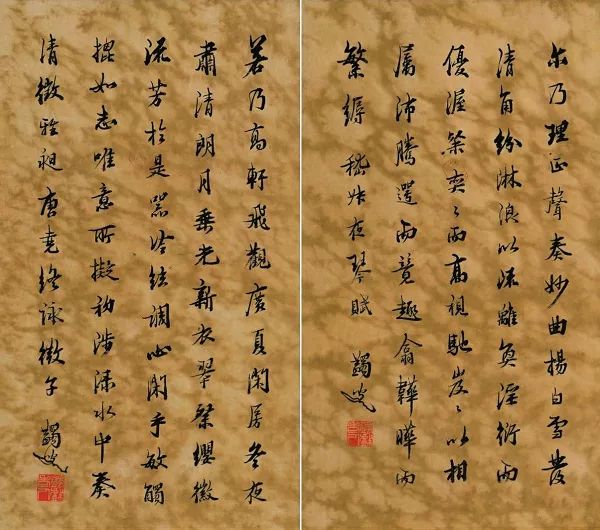 尔乃理正聲奏妙曲楊白雪發
清角紛淋浪以流離奐淫衍而
優渥粲奕〻而高視馳岌〻以相
屬沛騰遌而竟趣翕韡曄而
繁縟 嵇叔夜琴賦 蠲叟
若乃高軒飛觀廣夏閑房冬夜
肅清朗月垂光新衣翠粲纓徽
流芳於是器冷絃調心閑手敏觸
㧙如志唯意所擬初涉淥水中奏
清徵雅昶唐堯終詠微子 蠲叟